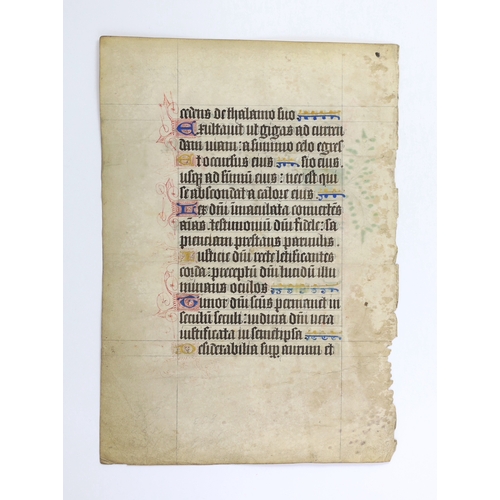 cedens de thalamo suo
Exultauit ut gigas ad curren
dam uiam: a summo celo egres
Et occursus eius sio eius.
usq ad summu eius: nec est qui
se abscondat a calore eius.
Lex dni immaculata conuertens
aias. testimoniu dni fidele: sa
pienciam prestans paruulis.
Iusticie dni recte letificantes
corda: preceptu dni lucidu illu
minans oculos
Timor dni scus permanet in
seculu seculi: iudicia dni uera
iustificata in semetipsa
Desiderabilia sup aurum et